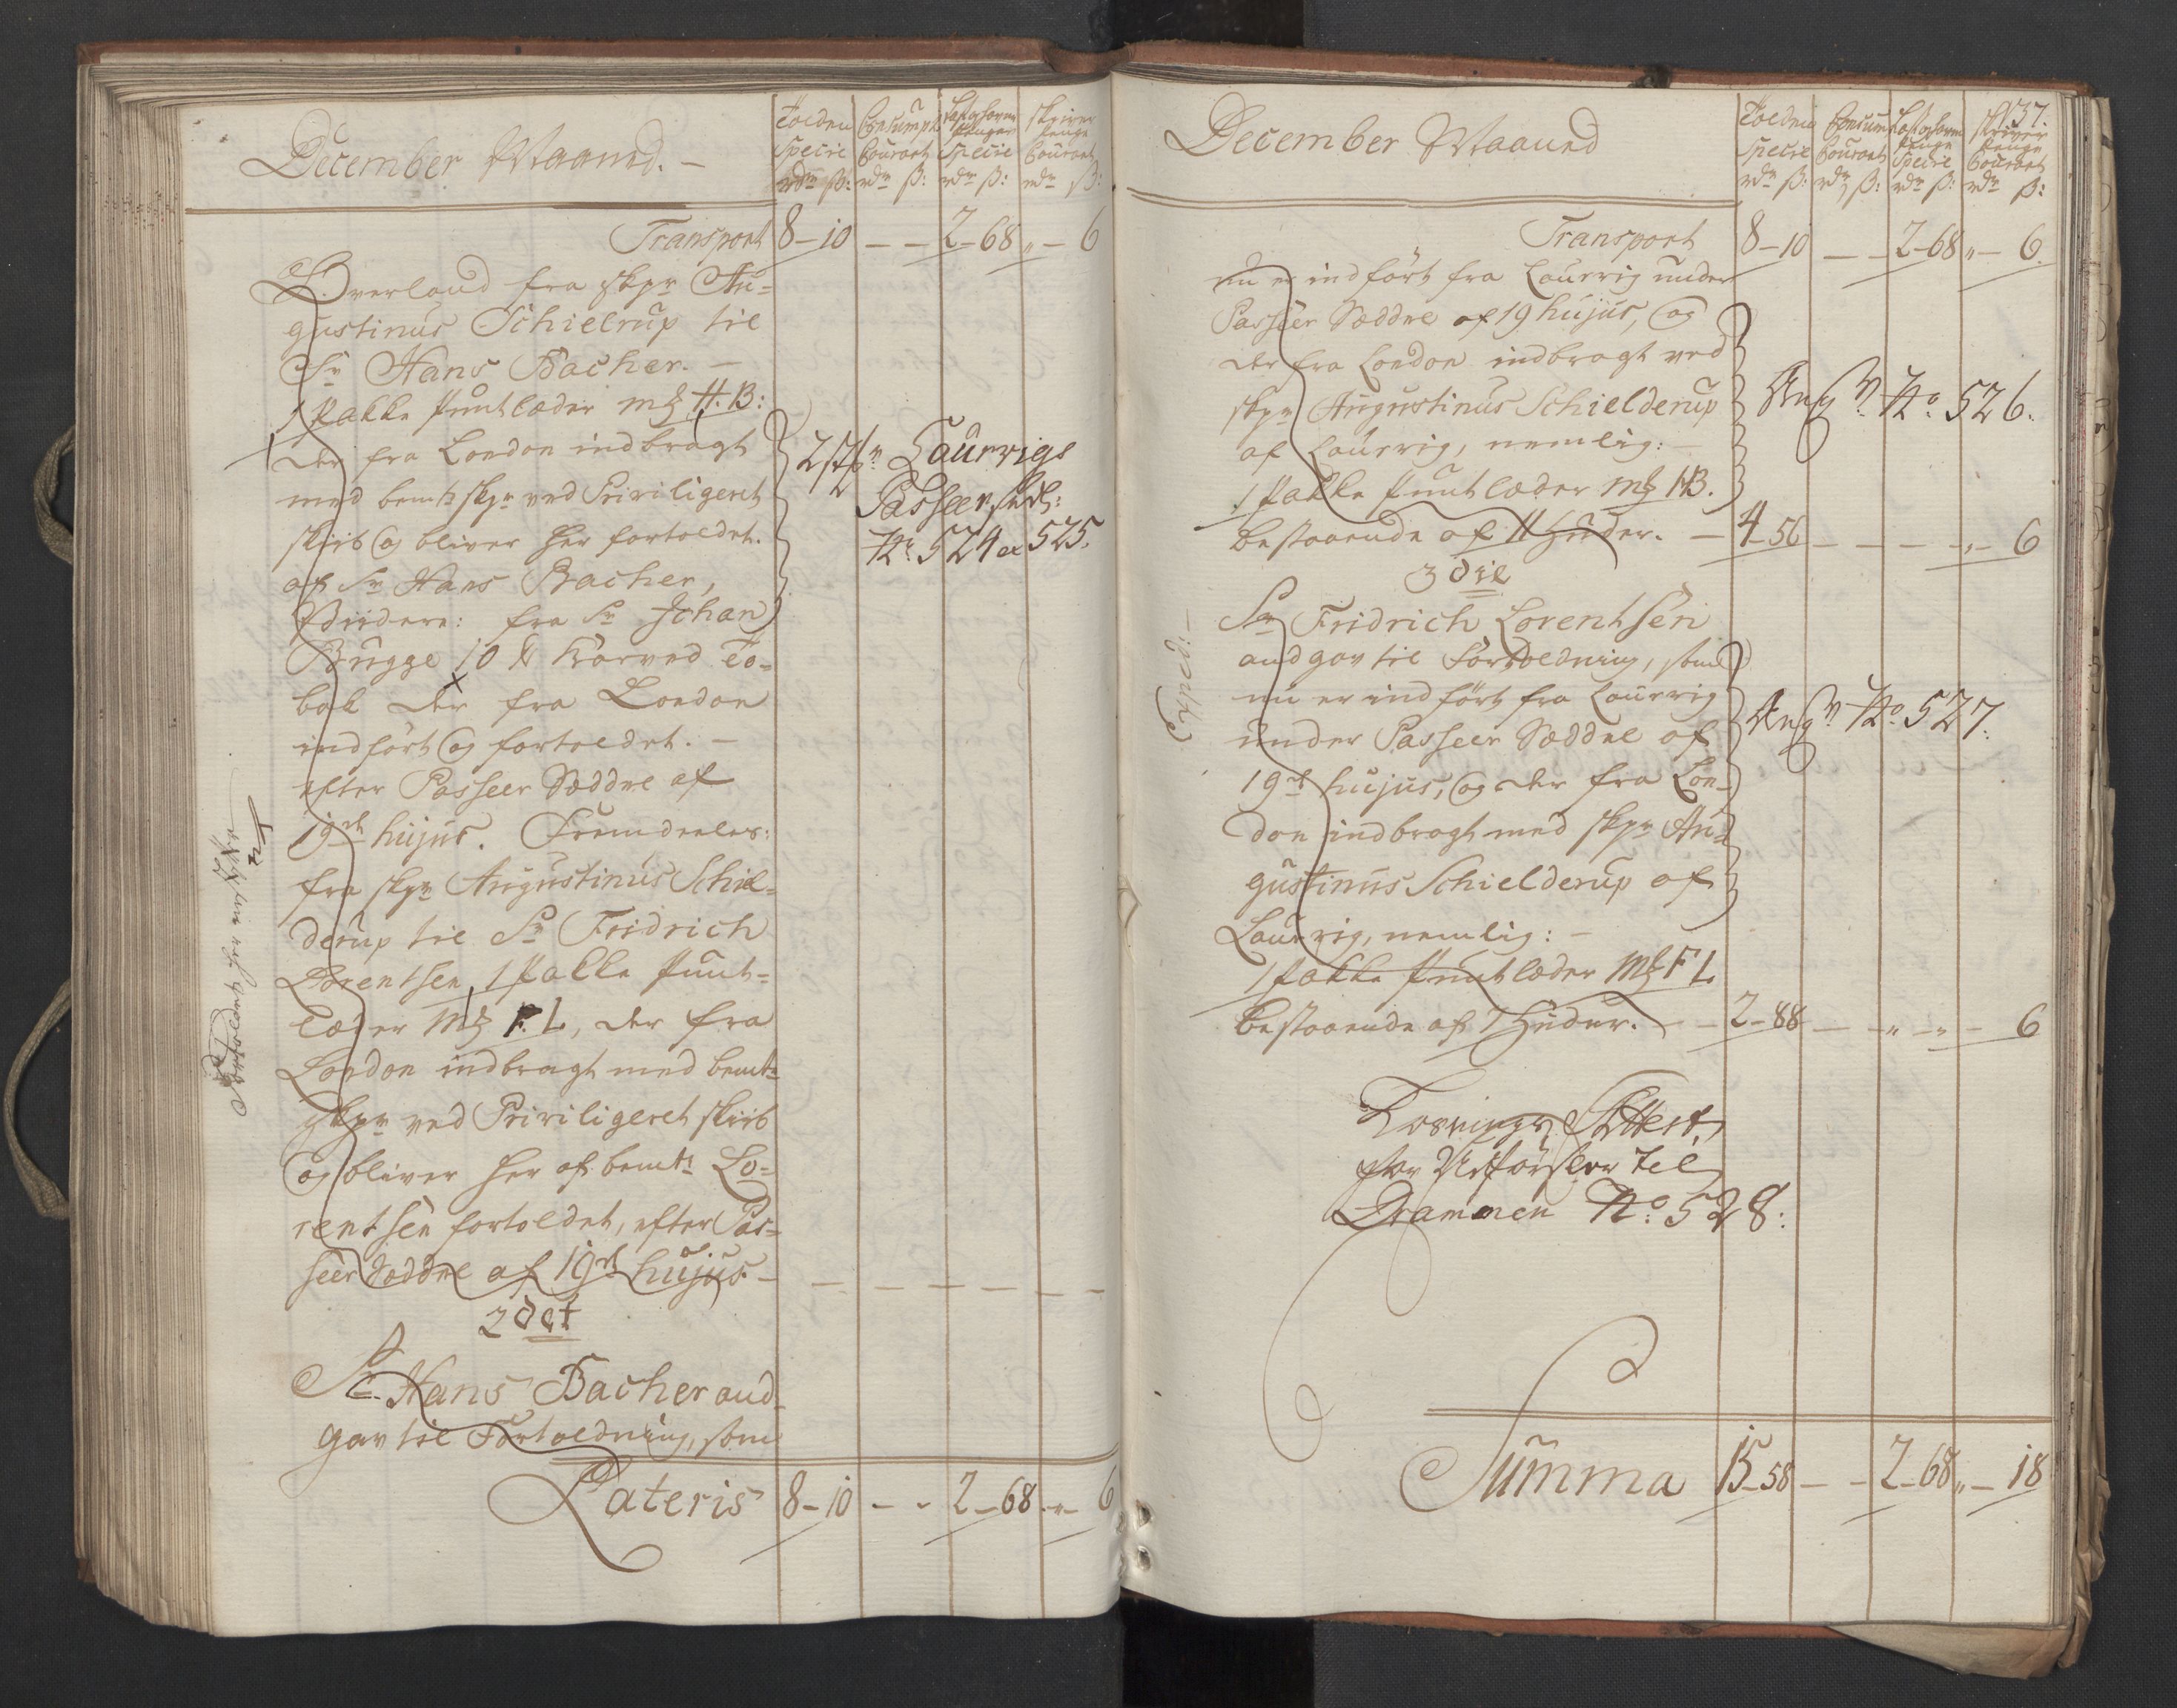 December Maaned. –
Tolden Specie rdr ß:
Consumpt: Courant rdr ß:
Specie rdr ß:
Skriver Penge Courant rdr ß:
Transport 8–10 – – 2–68 „– 6
Overland fra Skpr Au-
gustinus Schielrup til
Sr Hans Bacher. –
1 Pakke Puntlæder Mk H.B:
der fra London indbragt
med bemte Skpr ved Priviligeret
Skiib og bliver her fortoldet.
af Sr Hans Bacher,
Viidere: fra Sr Johan
Bugge 10 ℔ Karved To-
bak der fra London
indført og fortoldet. –
efter Passeer Sæddel af
19de hujus. Fremdeeles:
fra Skpr Augustinus Schiel-
derup til Sr Fridrich
Lorentsen 1 Pakke Punt-
læder Mk F.L, der fra
London indbragt med bemte
Skpr ved Priviligeret Skiib
og bliver her af bemte Lo-
rentsen fortoldet, efter Pas-
seer Sæddel af 19de hujus. –
2 Laurvigs
Passeer Sedl:
No 524 et 525.
Fortoldet her
2det
Sr. Hans Bacher and-
gav til Fortoldning, som
Lateris 8–10 – – 2–68 „– 6
37.
December Maaned
Tolden Specie rdr ß:
Consumt Courant rdr ß:
Specie rdr ß:
Skriver Penge Courant rdr ß:
Transport 8–10 – – 2–68 „– 6.
nu er indført fra Laurvig under
Passeer Sæddel af 19 hujus, og
der fra London indbragt ved
Skpr Augustinus Schielderup
af Laurvig, nemlig: –
1 Pakke Puntlæder Mk HB.
Bestaaende af 11 Huder. – 4–56 – – – – „– 6
Ang. No. 526.
3die
Exped: –
Sr Fridrich Lorentsen
andgav til Fortoldning, som
nu er indført fra Laurvig
under Passeer Sæddel af
19de hujus, og der fra Lon-
don indbragt med Skpr Au-
gustinus Schielderup af
Laurvig, nemlig: –
1 Pakke Puntlæder Mk F L
Bestaaende af 7 Huder. – 2–88 – – „ – „ – 6
Ang. No. 527.
Losnings Attest,
for Udførsler til
Drammen No. 528:
Summa 15–58 – – 2–68 „– 18